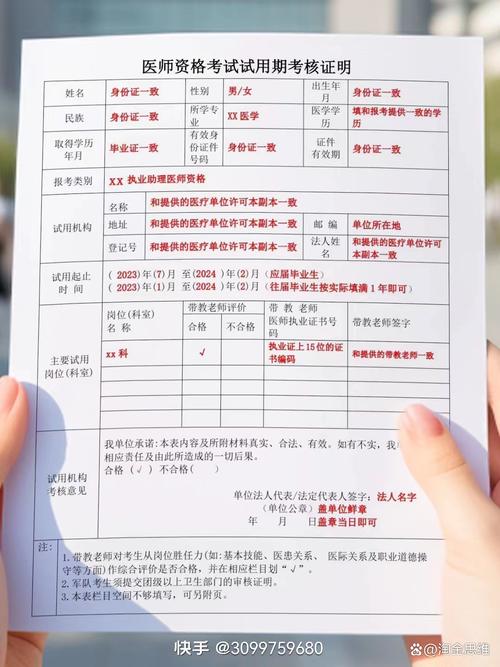 医师资格考试试用期考核证明
姓名 身份证一致 性别 男/女 出生年月 身份证一致
民族 身份证一致 所学专业 XX医学 医学学历 填和报考提供一致的学历
取得学历年月 毕业证一致 有效身份证件号码 身份证一致 证件有效期 身份证一致
报考类别 XX 执业助理医师资格
试用机构 名称 和提供的医疗单位许可本副本一致
地址 和提供的医疗单位许可本副本一致 邮编 单位所在地
登记号 和提供的医疗单位许可本副本一致 法人姓名 和提供的医疗单位许可本副本一致
试用起止时间 (2023)年(7)月 至(2024)年(2)月(应届毕业生)
(2023)年(1)月 至(2024)年(2)月(往届毕业生按实际填满1年即可)
主要试用岗位(科室) 岗位(科室)名称 带教老师评价 合格 不合格 带教老师医师执业证书号码 带教老师签字
xx科 √ 执业证上15位的证书编码 和提供的带教老师一致
试用机构考核意见
我单位承诺:本表内容及所附材料真实、合法、有效。如有不实,我
相应责任及由此所造成的一切后果。
合格(√)不合格( )
单位法人代表/法定代表人签字:法人名字
(单位公章)盖单位鲜章
年 月 日盖章当日即可
注:
1.带教老师对考生从岗位胜任力(如:基本技能、医患关系、医际关系及职业道德操
守等方面)作综合评价是否合格,并在相应栏目划“√”。
2.军队考生须提交团级以上卫生部门的审核证明。
3.本表栏目空间不够填写,可另附页。
快手 @3099759680
@淘金思维